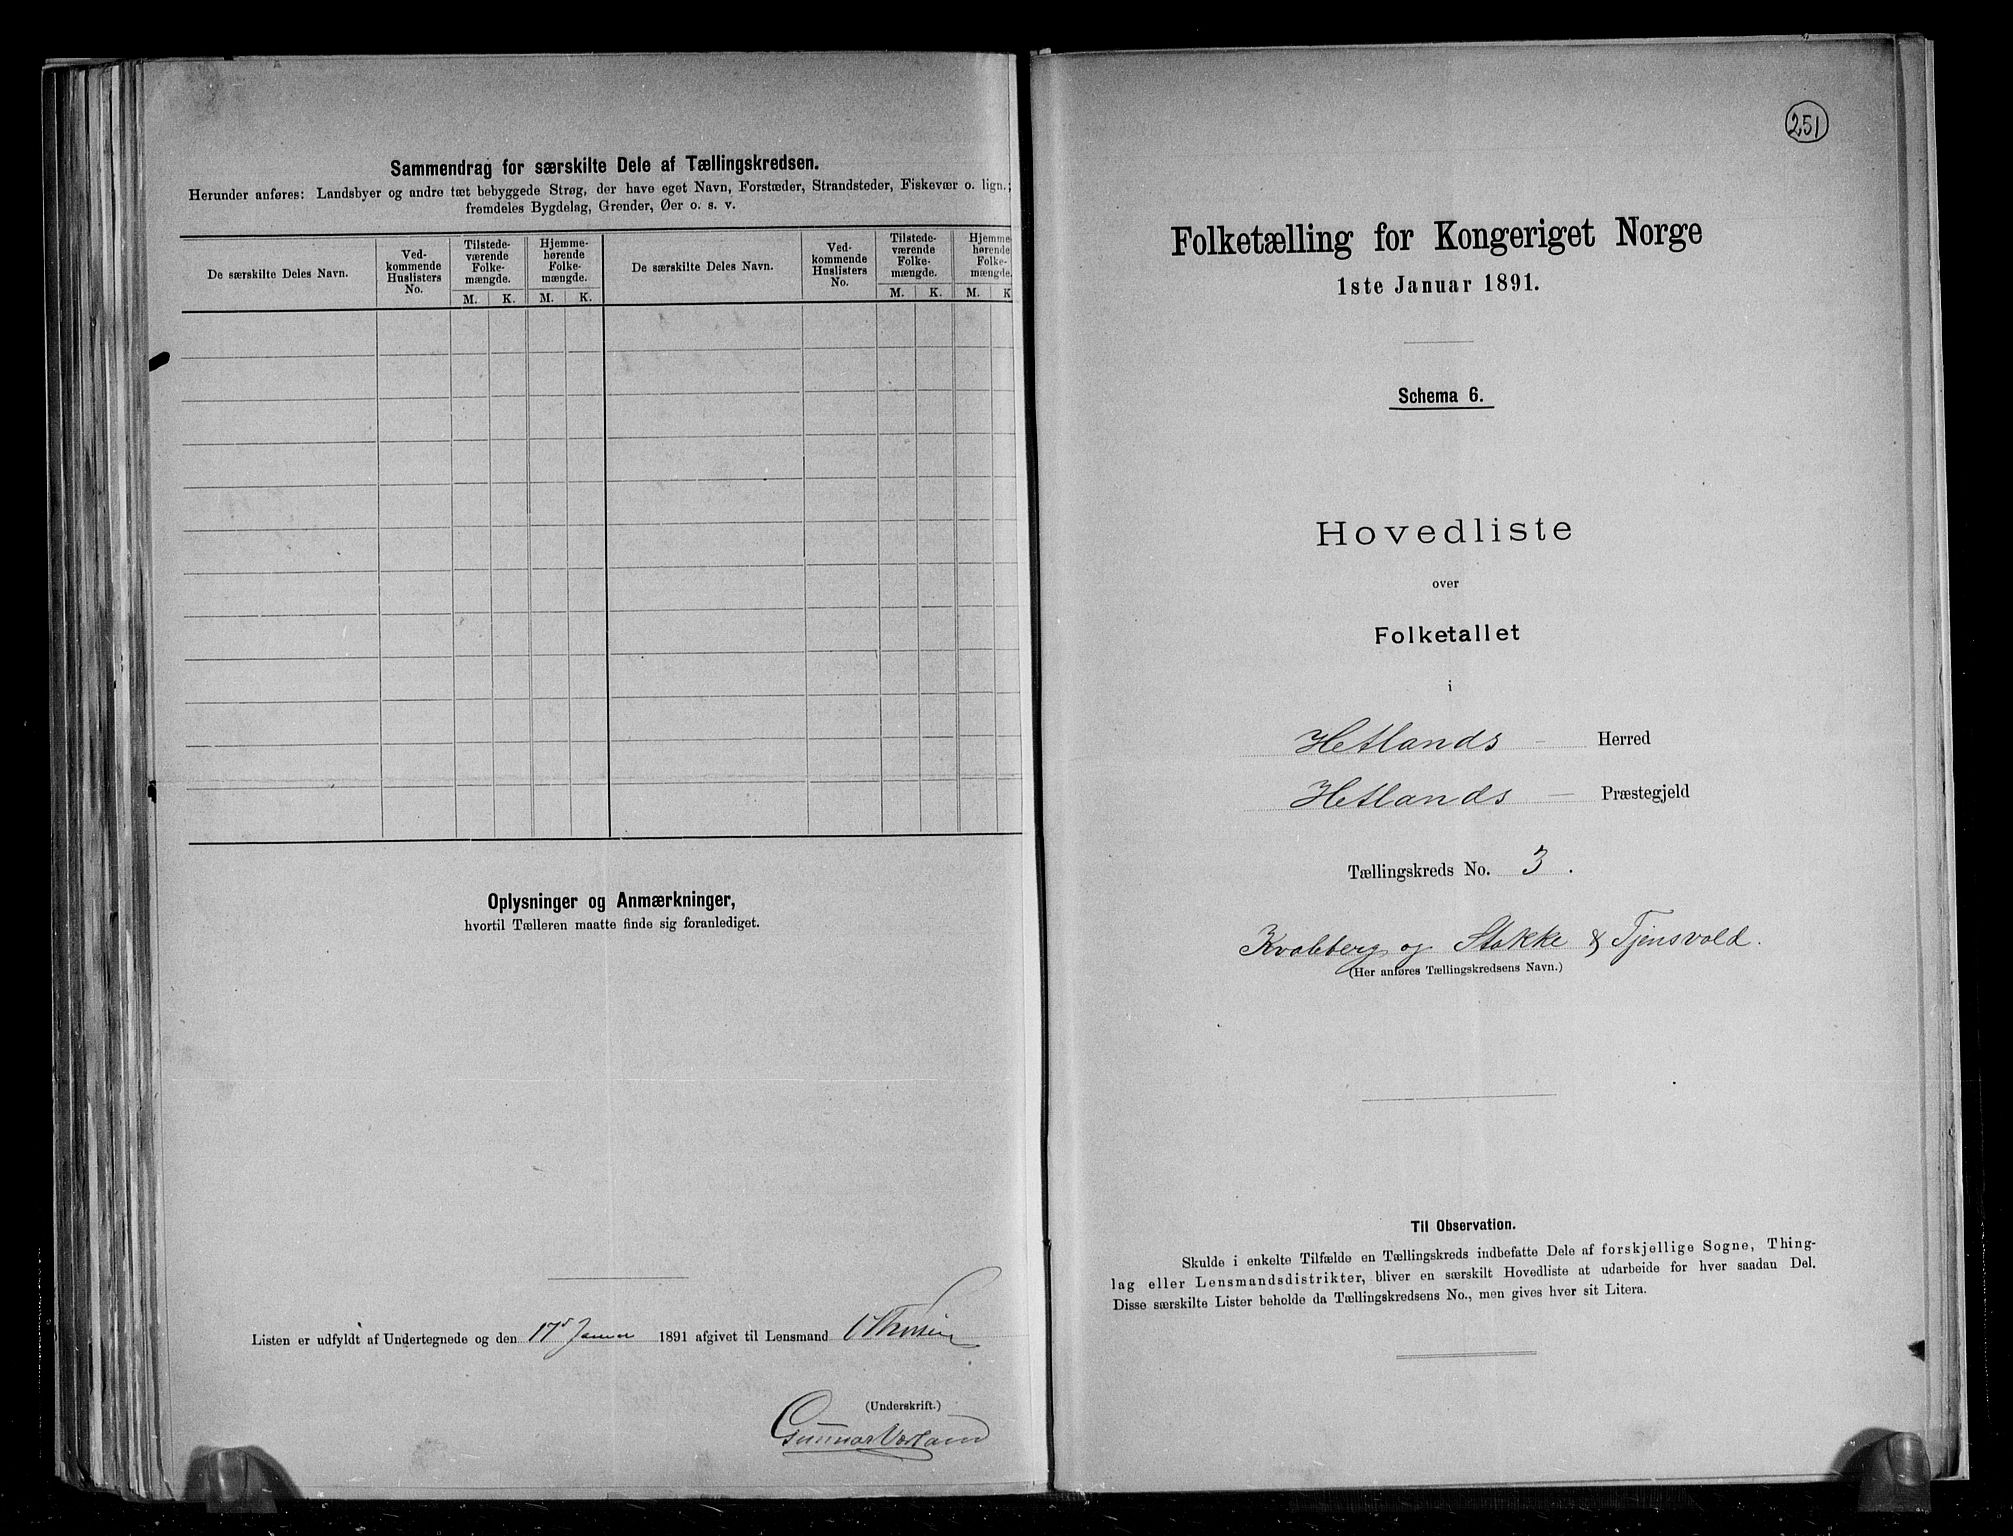 Sammendrag for særskilte Dele af Tællingskredsen.
Herunder anføres: Landsbyer og andre tæt bebyggede Strøg, der have eget Navn, Forstæder, Strandsteder, Fiskevær o. lign.;
fremdeles Bygdelag, Grender, Øer o. s. v.
De særskilte Deles Navn.
Ved-
kommende
Huslisters
No.
Tilstede-
værende
Folke-
mængde.
Hjemme-
hørende
Folke-
mængde.
M. K. M. K.
De særskilte Deles Navn.
Ved-
kommende
Huslisters
No.
Tilstede-
værende
Folke-
mængde.
Hjemme-
hørende
Folke-
mængde.
M. K. M. K
Oplysninger og Anmærkninger,
hvortil Tælleren maatte finde sig foranlediget.
Listen er udfyldt af Undertegnede og den 17 Januar 1891 afgivet til Lensmand
(Underskrift.)
Gunnar
251
Folketælling for Kongeriget Norge
1ste Januar 1891.
Schema 6.
Hovedliste
over
Folketallet
i
Hetlands – Herred
Hetlands – Præstegjeld
Tællingskreds No. 3.
Kvaleberg og Stokke & Tjensvold.
(Her anføres Tællingskredsens Navn.)
Til Observation.
Skulde i enkelte Tilfælde en Tællingskreds indbefatte Dele af forskjellige Sogne, Thing-
lag eller Lensmandsdistrikter, bliver en særskilt Hovedliste at udarbeide for hver saadan Del.
Disse særskilte Lister beholde da Tællingskredsens No., men gives hver sit Litera.